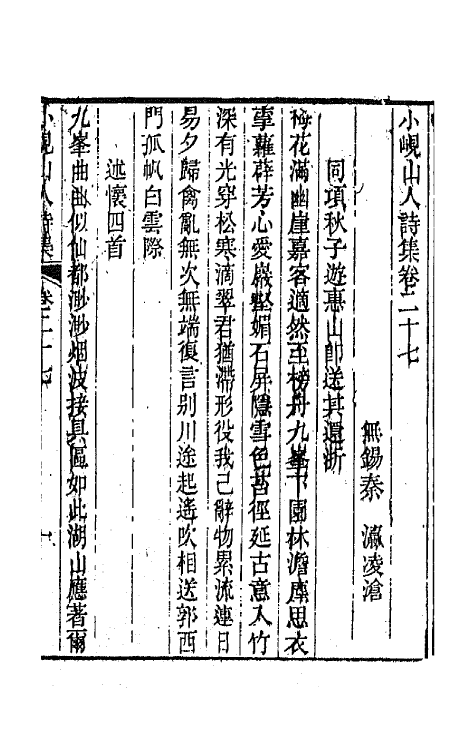 小峴山人詩集卷二十七
無錫秦 瀛凌滄
同項秋子遊惠山卽送其還浙
梅花滿幽崖嘉客適然至榜舟九峯下園林澹塵思衣
搴蘿薜芳心愛巖壑媚石屏隱雪色苔徑延古意入竹
深有光穿松寒滴翠君猶滯形役我已辭物累流連日
易夕歸禽亂無次無端復言别川途起遙吹相送郭西
門孤帆白雲際
述懷四首
九峯曲曲似仙都渺渺烟波接具區如此湖山應著爾
小峴山人詩集 卷二十七 一